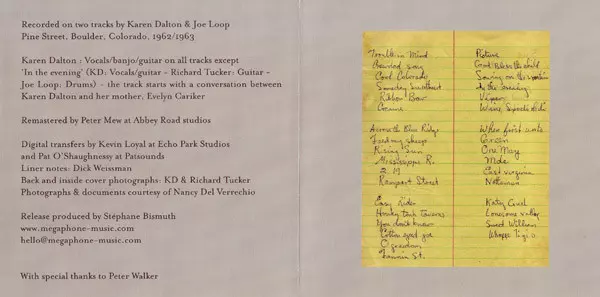 Recorded on two tracks by Karen Dalton & Joe Loop
Pine Street, Boulder, Colorado, 1962/1963
Karen Dalton : Vocals/banjo/guitar on all tracks except
'In the evening' (KD: Vocals/guitar - Richard Tucker: Guitar -
Joe Loop: Drums) - the track starts with a conversation between
Karen Dalton and her mother, Evelyn Cariker
Remastered by Peter Mew at Abbey Road studios
Digital transfers by Kevin Loyal at Echo Park Studios
and Pat O'Shaughnessy at Patsounds
Liner notes: Dick Weissman
Back and inside cover photographs: KD & Richard Tucker
Photographs & documents courtesy of Nancy Del Verrechio
Release produced by Stéphane Bismuth
www.megaphone-music.com
hello@megaphone-music.com
With special thanks to Peter Walker
Mind
Cool Colorado
Ribbon Bow
Cocaine
Blue Ridge
Rising Sun
Mississippi R.
Rampart Street
Easy Rider
Honky tonk Taverns
You don't know
Cotton eyed Joe
Fannin St.
Picture
God Bless the child
on the mountain
In the evening
When first unto
One May
Mole
East virginia
Nottamun
Katy Cruel
Lonesome valley
Sweet William